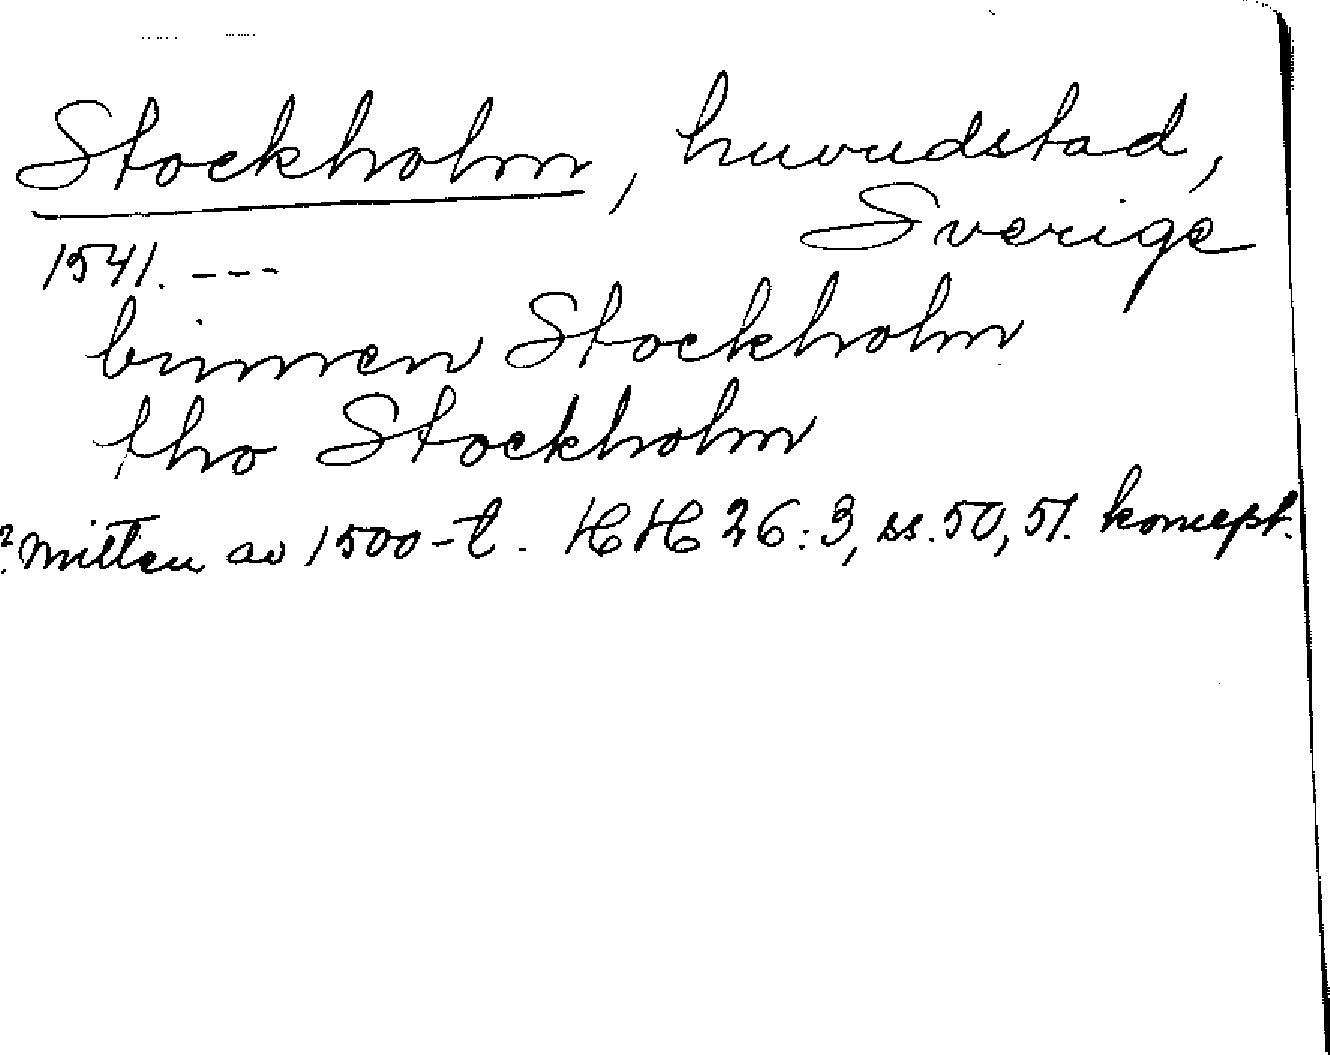 Stockholm, huvudstad,
Sverige
1541. ---
binnen Stockholm
tho Stockholm
? Mitten av 1500-t. HH 26:3, ss. 50, 51. koncept.